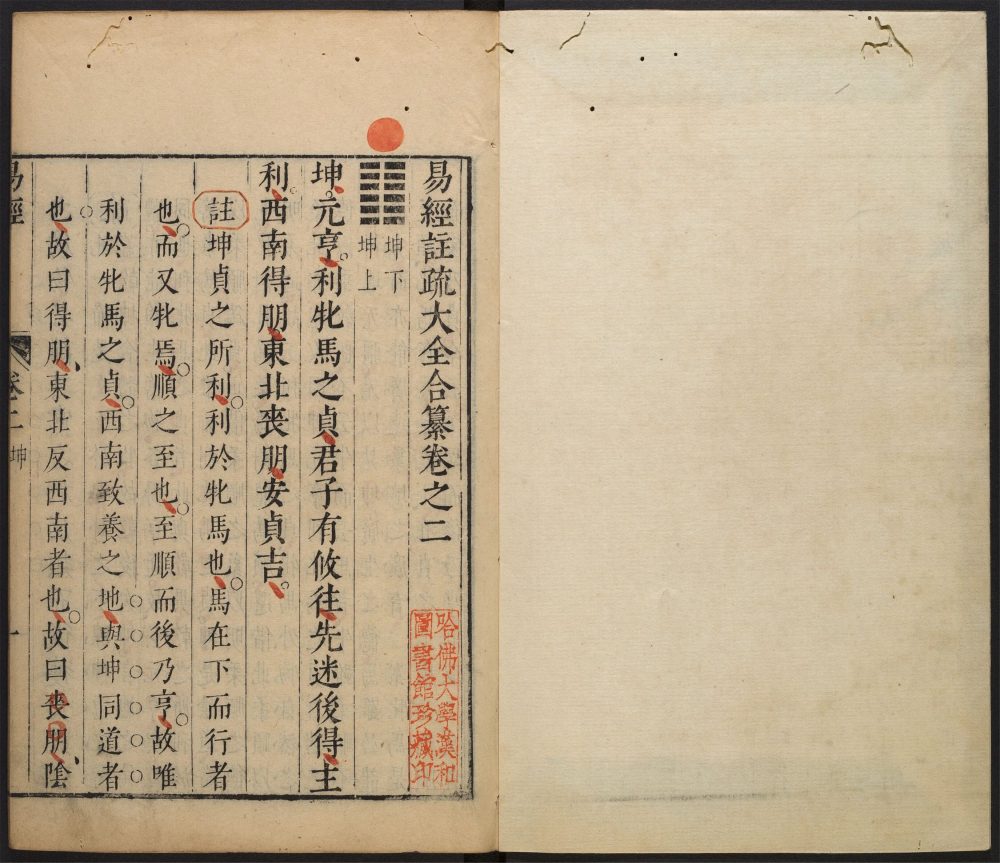 易經註疏大全合纂卷之二
哈佛大學漢和
圖書館珍藏印
坤下
坤上
坤元亨利牝馬之貞君子有攸往先迷後得主
利西南得朋東北喪朋安貞吉
註坤貞之所利利於牝馬也馬在下而行者
也而又牝焉順之至也至順而後乃亨故唯
利於牝馬之貞西南致養之地與坤同道者
也故曰得朋東北反西南者也故曰喪朋陰
易經 卷二 坤 一